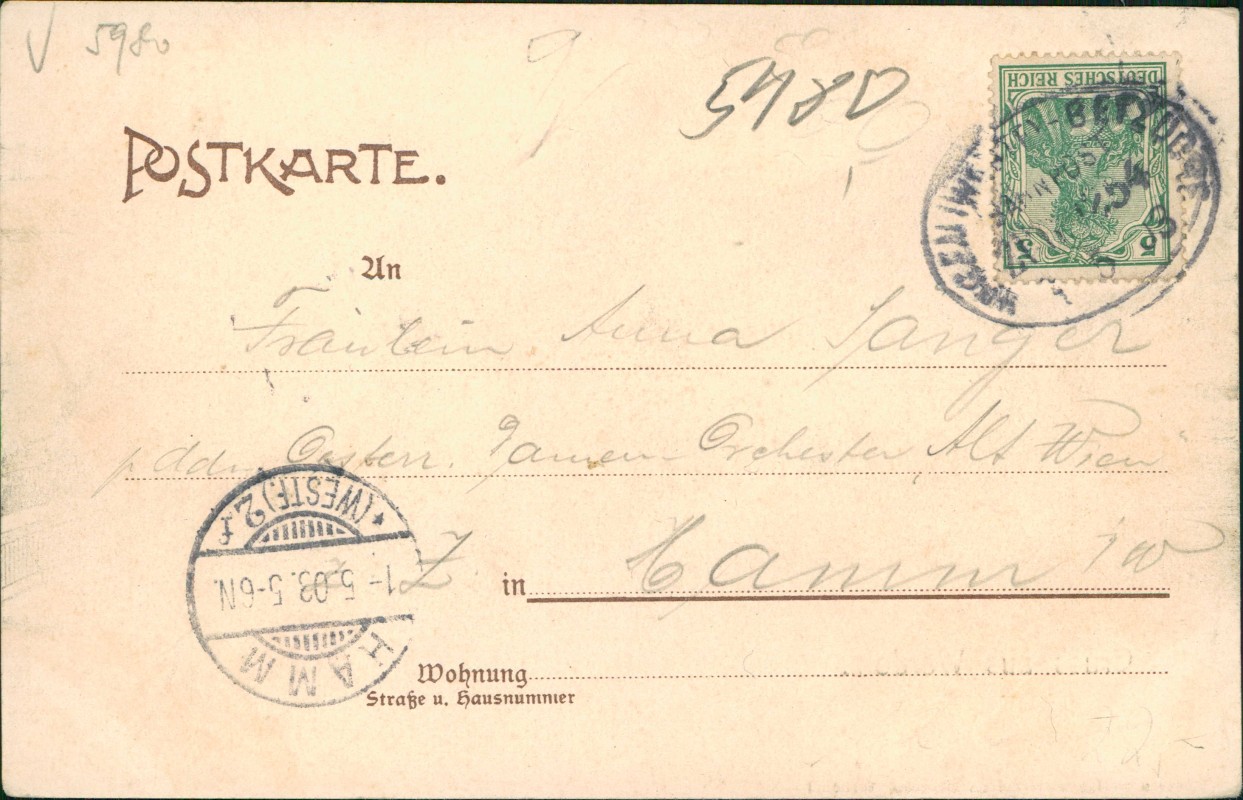 V 5980
5980
DEUTSCHES REICH
5 5
HAGEN (W.)-BETZDORF
BAHNPOST
POSTKARTE.
An
Fräulein Anna Sanger
p. ddr. Oesterr. Damen Orchester „Alt Wien"
in Hamm i/W
HAMM
1-5.03.5-6N.
*(WESTF.) 2 f
Wohnung
Straße u. Hausnummer